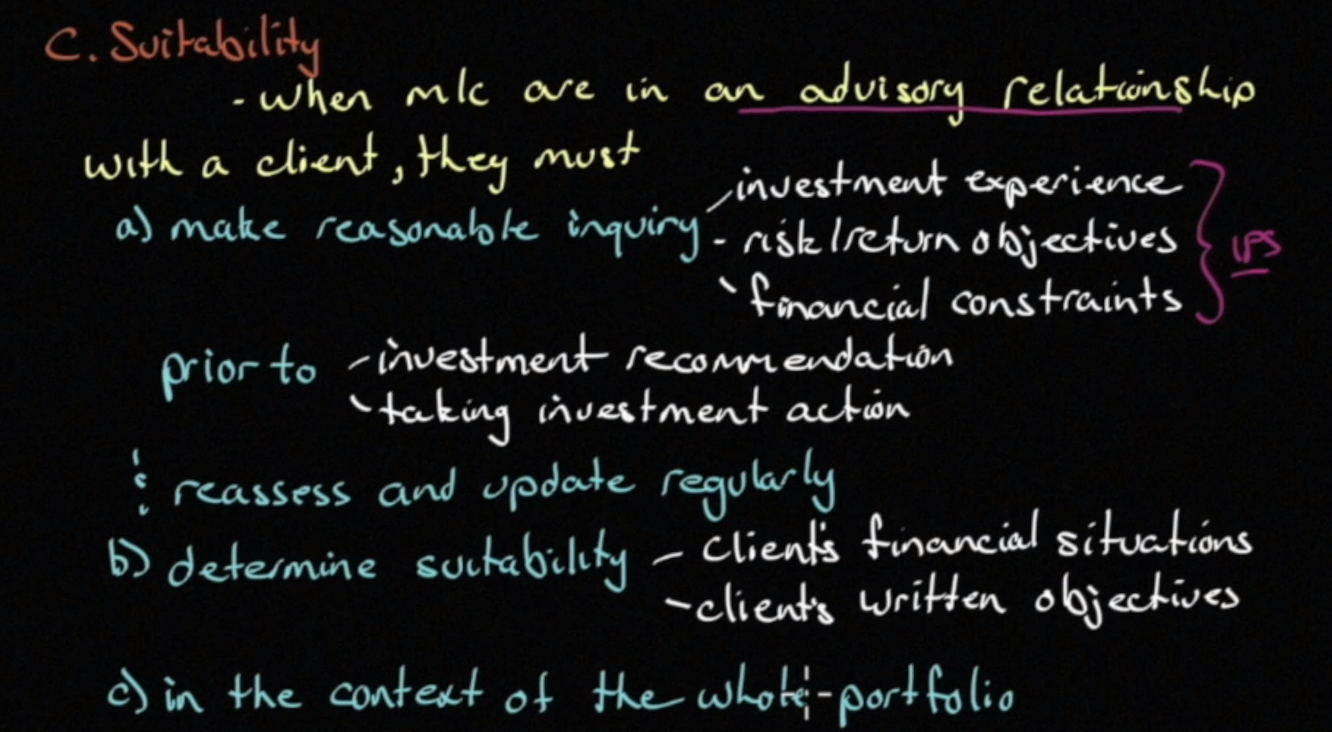 C. Suitability
- when m/c are in an advisory relationship
with a client, they must
a) make reasonable inquiry
- investment experience
- risk/return objectives
- financial constraints
IPS
prior to
- investment recommendation
- taking investment action
& reassess and update regularly
b) determine suitability
- client's financial situations
- client's written objectives
c) in the context of the whole-portfolio